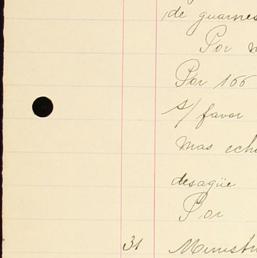 de guarnes
Por
Por 100
S/ favor
mas echa
desagüe
Por
31 Ministr